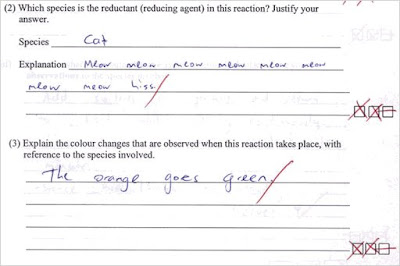 (2) Which species is the reductant (reducing agent) in this reaction? Justify your
answer.
Species Cat
Explanation Meow meow meow meow meow meow
meow meow hiss
(3) Explain the colour changes that are observed when this reaction takes place, with
reference to the species involved.
The orange goes green.